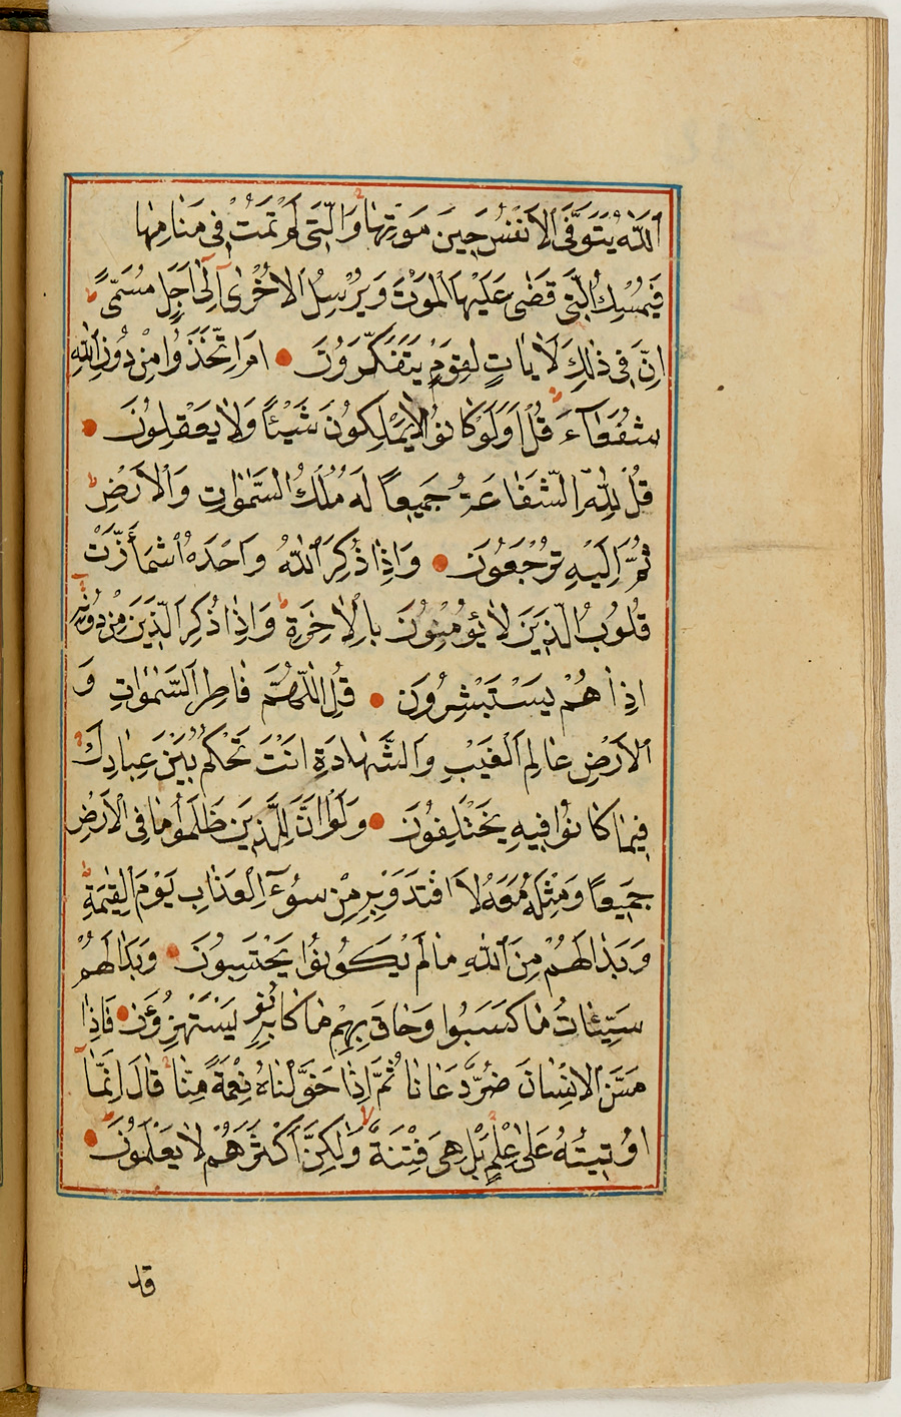 اَللّٰهُ يَتَوَفَّى الْاَنْفُسَ حِينَ مَوْتِهَا وَالَّتِى لَمْ تَمُتْ فِى مَنَامِهَا
فَيُمْسِكُ الَّتِى قَضٰى عَلَيْهَا الْمَوْتَ وَيُرْسِلُ الْاُخْرٰى اِلٰٓى اَجَلٍ مُسَمًّى ط
اِنَّ فِى ذٰلِكَ لَاٰيَاتٍ لِقَوْمٍ يَتَفَكَّرُونَ ● اَمِ اتَّخَذُوا مِنْ دُونِ اللّٰهِ
شُفَعَآءَ قُلْ اَوَلَوْ كَانُوا لَا يَمْلِكُونَ شَيْئًا وَلَا يَعْقِلُونَ ●
قُلْ لِلّٰهِ الشَّفَاعَةُ جَمِيعًا لَهُ مُلْكُ السَّمٰوَاتِ وَالْاَرْضِ ط
ثُمَّ اِلَيْهِ تُرْجَعُونَ ● وَاِذَا ذُكِرَ اللّٰهُ وَحْدَهُ اشْمَأَزَّتْ
قُلُوبُ الَّذِينَ لَا يُؤْمِنُونَ بِالْاٰخِرَةِ ط وَاِذَا ذُكِرَ الَّذِينَ مِنْ دُونِهِ
اِذَا هُمْ يَسْتَبْشِرُونَ ● قُلِ اللّٰهُمَّ فَاطِرَ السَّمٰوَاتِ وَ
الْاَرْضِ عَالِمَ الْغَيْبِ وَالشَّهَادَةِ اَنْتَ تَحْكُمُ بَيْنَ عِبَادِكَ
فِيمَا كَانُوا فِيهِ يَخْتَلِفُونَ ● وَلَوْ اَنَّ لِلَّذِينَ ظَلَمُوا مَا فِى الْاَرْضِ
جَمِيعًا وَمِثْلَهُ مَعَهُ لَافْتَدَوْا بِهِ مِنْ سُوٓءِ الْعَذَابِ يَوْمَ الْقِيٰمَةِ ط
وَبَدَا لَهُمْ مِنَ اللّٰهِ مَا لَمْ يَكُونُوا يَحْتَسِبُونَ ● وَبَدَا لَهُمْ
سَيِّئَاتُ مَا كَسَبُوا وَحَاقَ بِهِمْ مَا كَانُوا بِهِ يَسْتَهْزِؤُنَ ● فَاِذَا
مَسَّ الْاِنْسَانَ ضُرٌّ دَعَانَا ثُمَّ اِذَا خَوَّلْنَاهُ نِعْمَةً مِنَّا قَالَ اِنَّمَا
اُو۫تِيتُهُ عَلٰى عِلْمٍ بَلْ هِىَ فِتْنَةٌ وَلٰكِنَّ اَكْثَرَهُمْ لَا يَعْلَمُونَ ●
قد